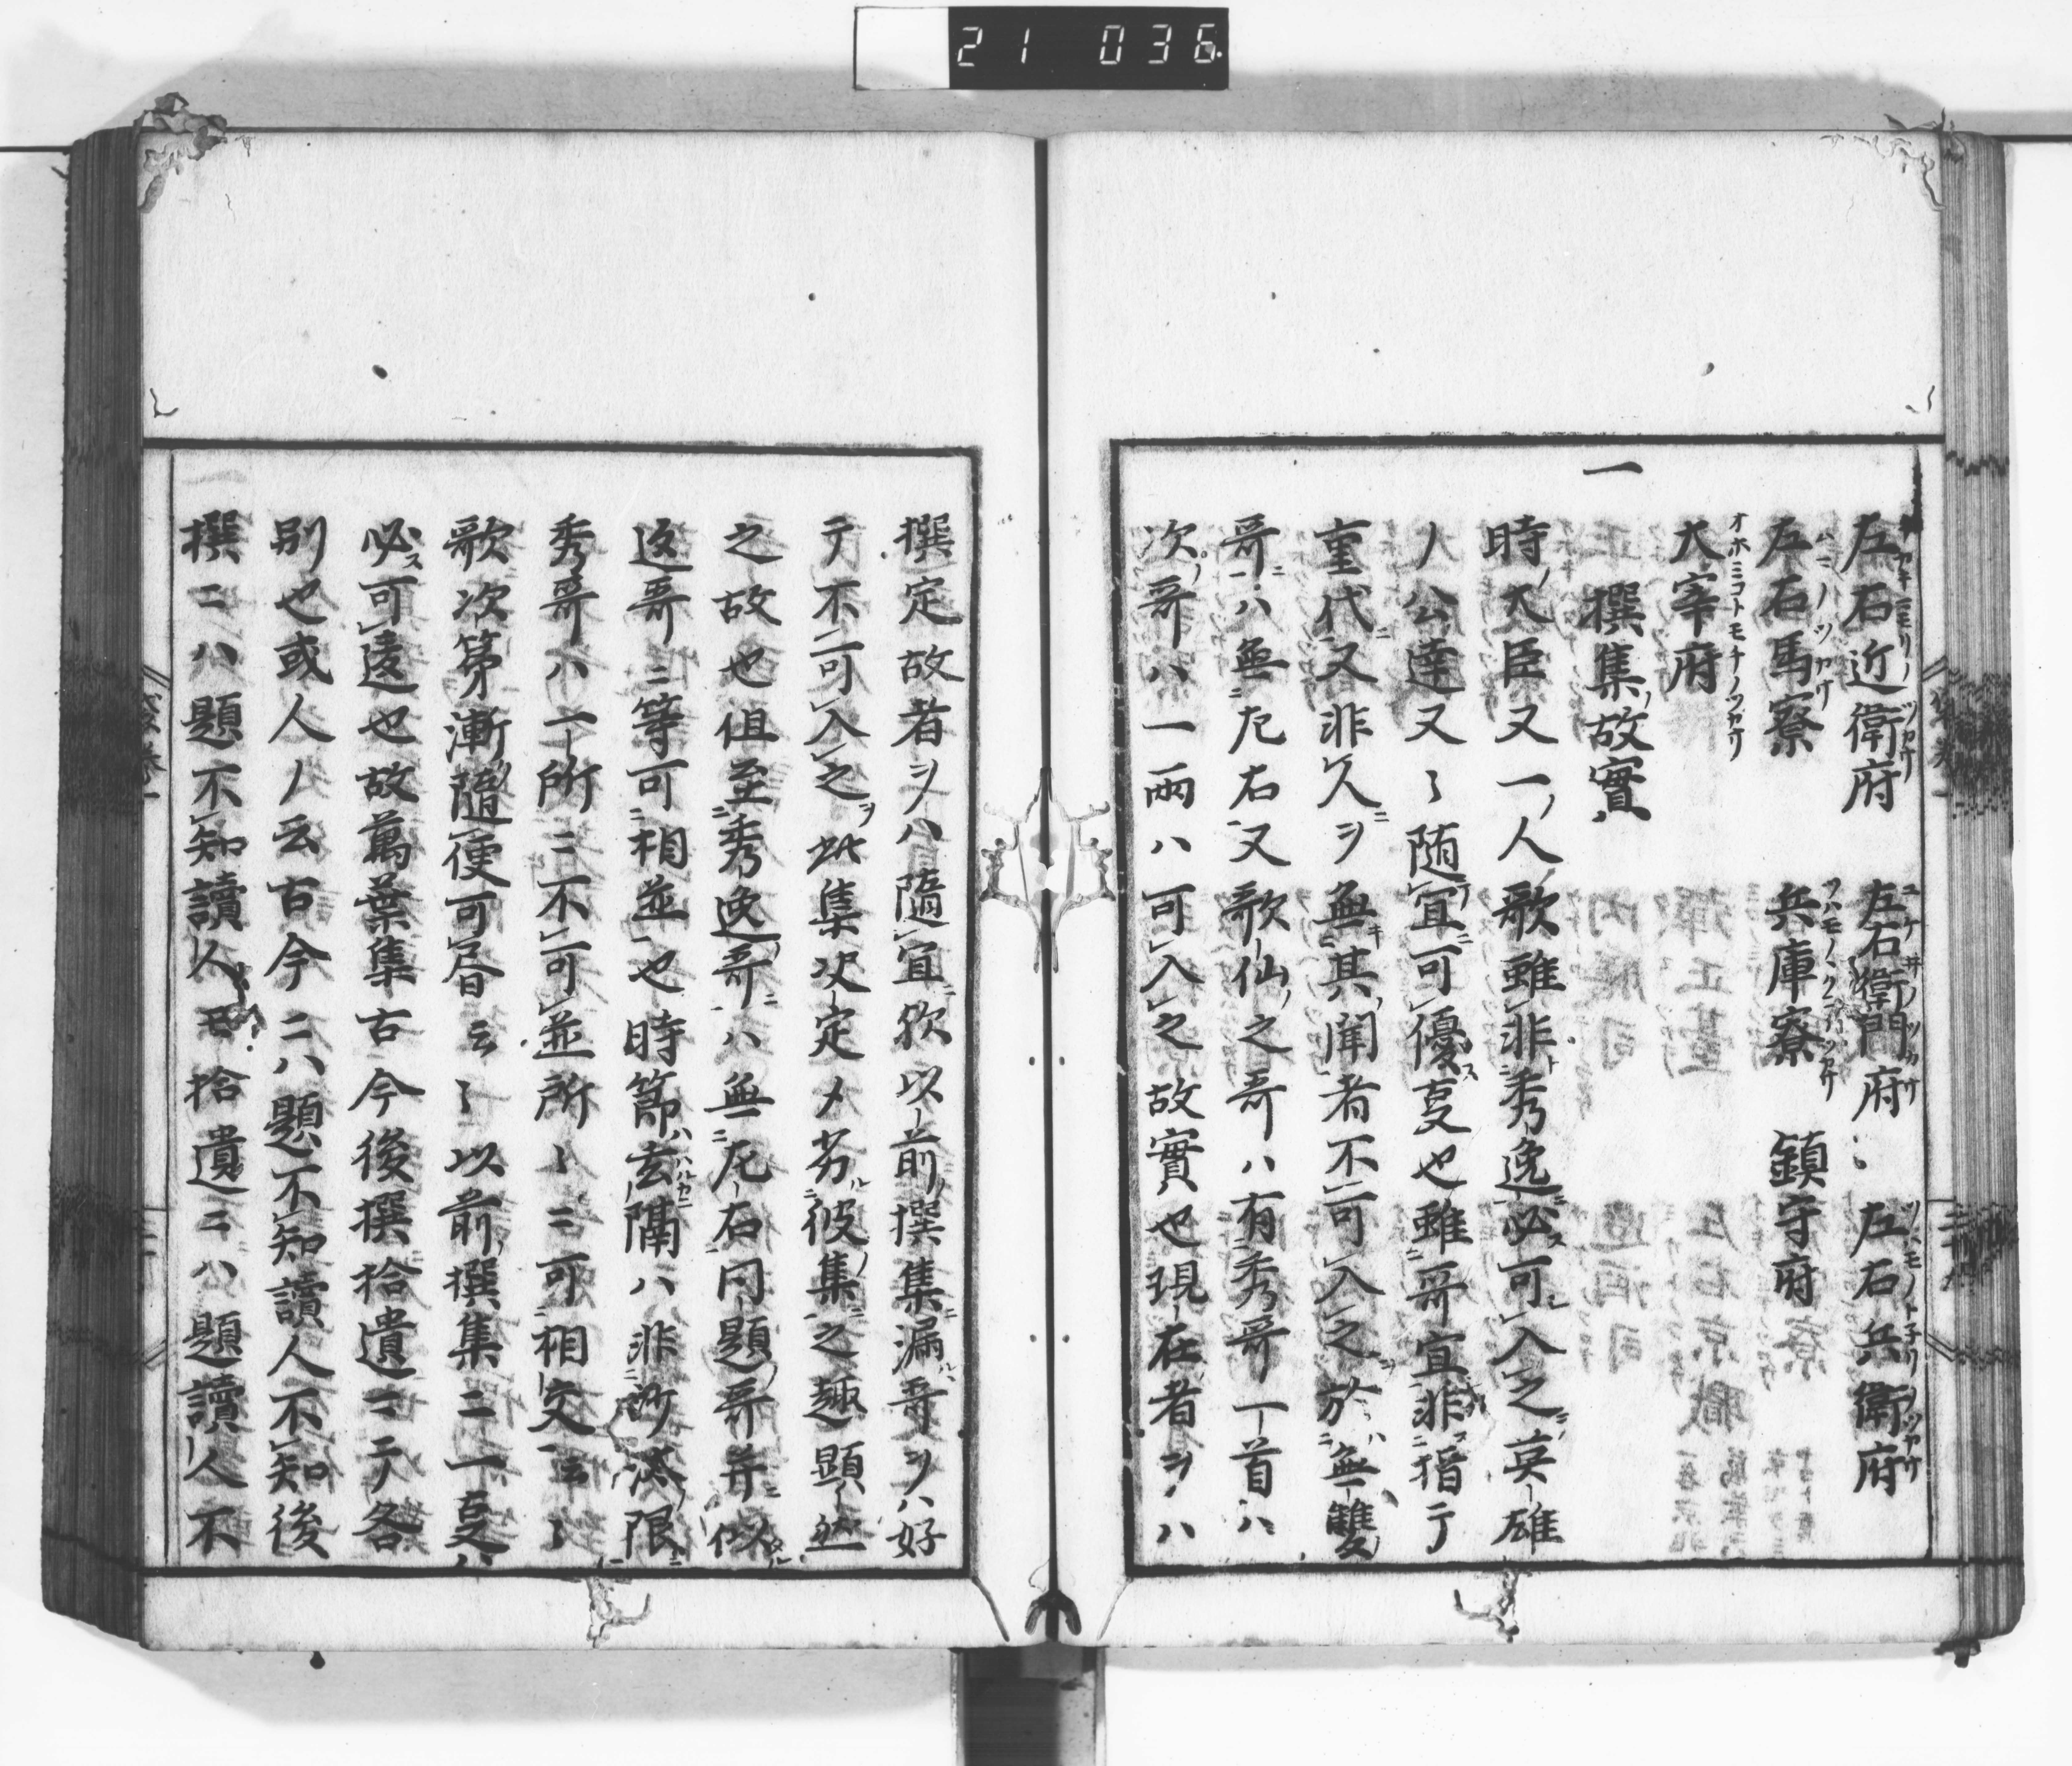 21 036
左右近衛府 左右衛門府 左右兵衛府
左右馬寮 兵庫寮 鎮守府
大宰府
オホミコトモチノツカサ
一 撰集故實
時ノ大臣又一ノ人ノ歌雖非秀逸必可入之英雄
ノ公達又〻随宜可優㕝也雖哥宜非指テ
重代又非久ヲ無其聞者不可入之於無雙
哥ニハ無左右又歌仙之哥ハ有秀哥一首ハ
次ノ哥ハ一両ハ可入之故實也現在者ヲハ
撰定故者ヲハ隨宜欤以前撰集漏哥ヲハ好
テ不可入之此集次定メ劣彼集之趣顕然
之故也但至秀逸哥ハ無左右同題哥并似
返哥ニ等可相並也時節玄隔ハ非沙汰限
秀哥ハ一所ニ不可並所〻ニ可相交云〻
歌次第漸隨便可㫪云〻以前撰集ニ一㕝ハ
必可違也故萬葉集古今後撰拾遺ニテ各
別也或人ノ云古今ニハ題不知讀人不知後
撰ニハ題不知讀人モ拾遺ニハ題讀人不